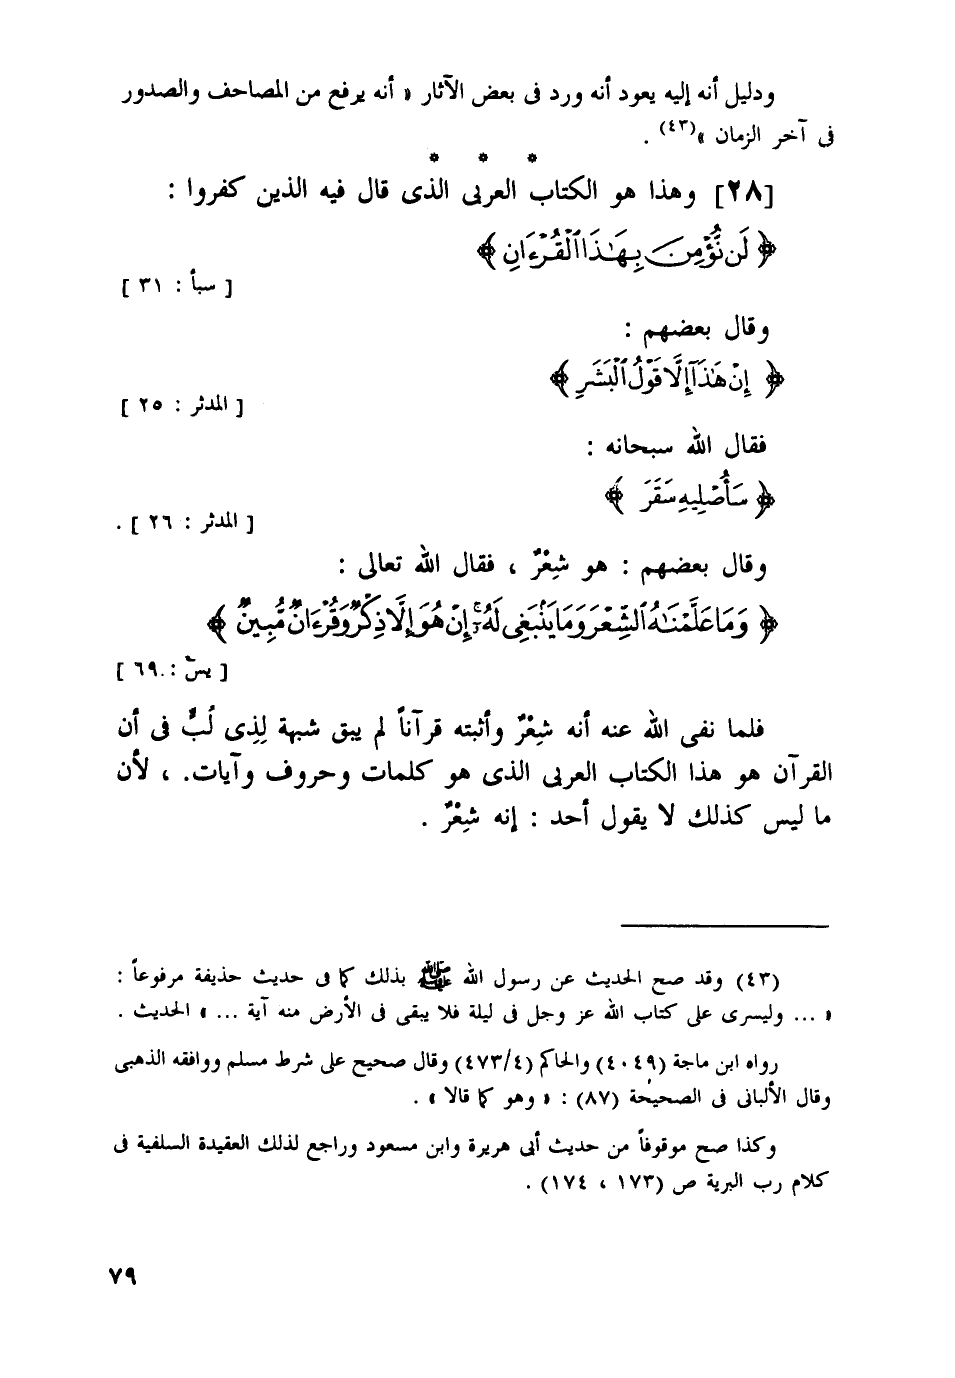 ودليل أنه إليه يعود أنه ورد فى بعض الآثار « أنه يرفع من المصاحف والصدور
فى آخر الزمان »(٤٣) .
* * *
[٢٨] وهذا هو الكتاب العربى الذى قال فيه الذين كفروا :
﴿ لَن نُّؤْمِنَ بِهَٰذَا ٱلْقُرْءَانِ ﴾
[ سبأ : ٣١ ]
وقال بعضهم :
﴿ إِنْ هَٰذَآ إِلَّا قَوْلُ ٱلْبَشَرِ ﴾
[ المدثر : ٢٥ ]
فقال الله سبحانه :
﴿ سَأُصْلِيهِ سَقَرَ ﴾
[ المدثر : ٢٦ ] .
وقال بعضهم : هو شِعْرٌ ، فقال الله تعالى :
﴿ وَمَا عَلَّمْنَٰهُ ٱلشِّعْرَ وَمَا يَنۢبَغِى لَهُۥٓ ۚ إِنْ هُوَ إِلَّا ذِكْرٌ وَقُرْءَانٌ مُّبِينٌ ﴾
[ يسٓ : ٦٩ ]
فلما نفى الله عنه أنه شِعْرٌ وأثبته قرآناً لم يبق شبهة لِذِى لُبٍّ فى أن
القرآن هو هذا الكتاب العربى الذى هو كلمات وحروف وآيات. ، لأن
ما ليس كذلك لا يقول أحد : إنه شِعْرٌ .
(٤٣) وقد صح الحديث عن رسول الله ﷺ بذلك كما فى حديث حذيفة مرفوعاً :
« ... وليسرى على كتاب الله عز وجل فى ليلة فلا يبقى فى الأرض منه آية ... » الحديث .
رواه ابن ماجة (٤٠٤٩) والحاكم (٤/٤٧٣) وقال صحيح على شرط مسلم ووافقه الذهبى
وقال الألبانى فى الصحيحة (٨٧) : « وهو كما قالا » .
وكذا صح موقوفاً من حديث أبى هريرة وابن مسعود وراجع لذلك العقيدة السلفية فى
كلام رب البرية ص (١٧٣ ، ١٧٤) .
٧٩